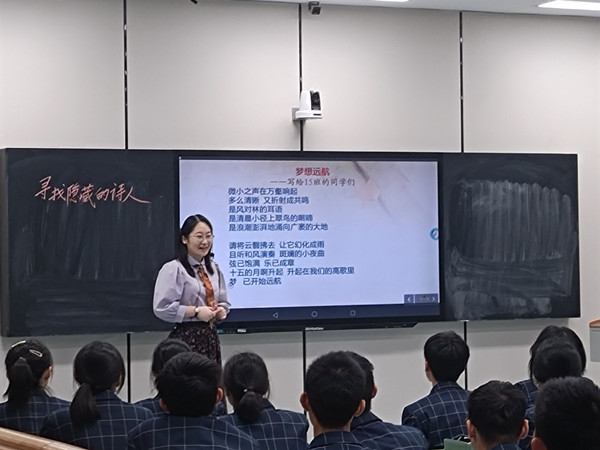 寻找隐藏的诗人
梦想远航
——写给15班的同学们
微小之声在万壑响起
多么清晰 又折射成共鸣
是风对林的耳语
是清晨小径上翠鸟的啁啾
是浪潮澎湃地涌向广袤的大地
请将云翳拂去 让它幻化成雨
且听和风演奏 斑斓的小夜曲
弦已饱满 乐已成章
十五的月啊升起 升起在我们的高歌里
梦 已开始远航